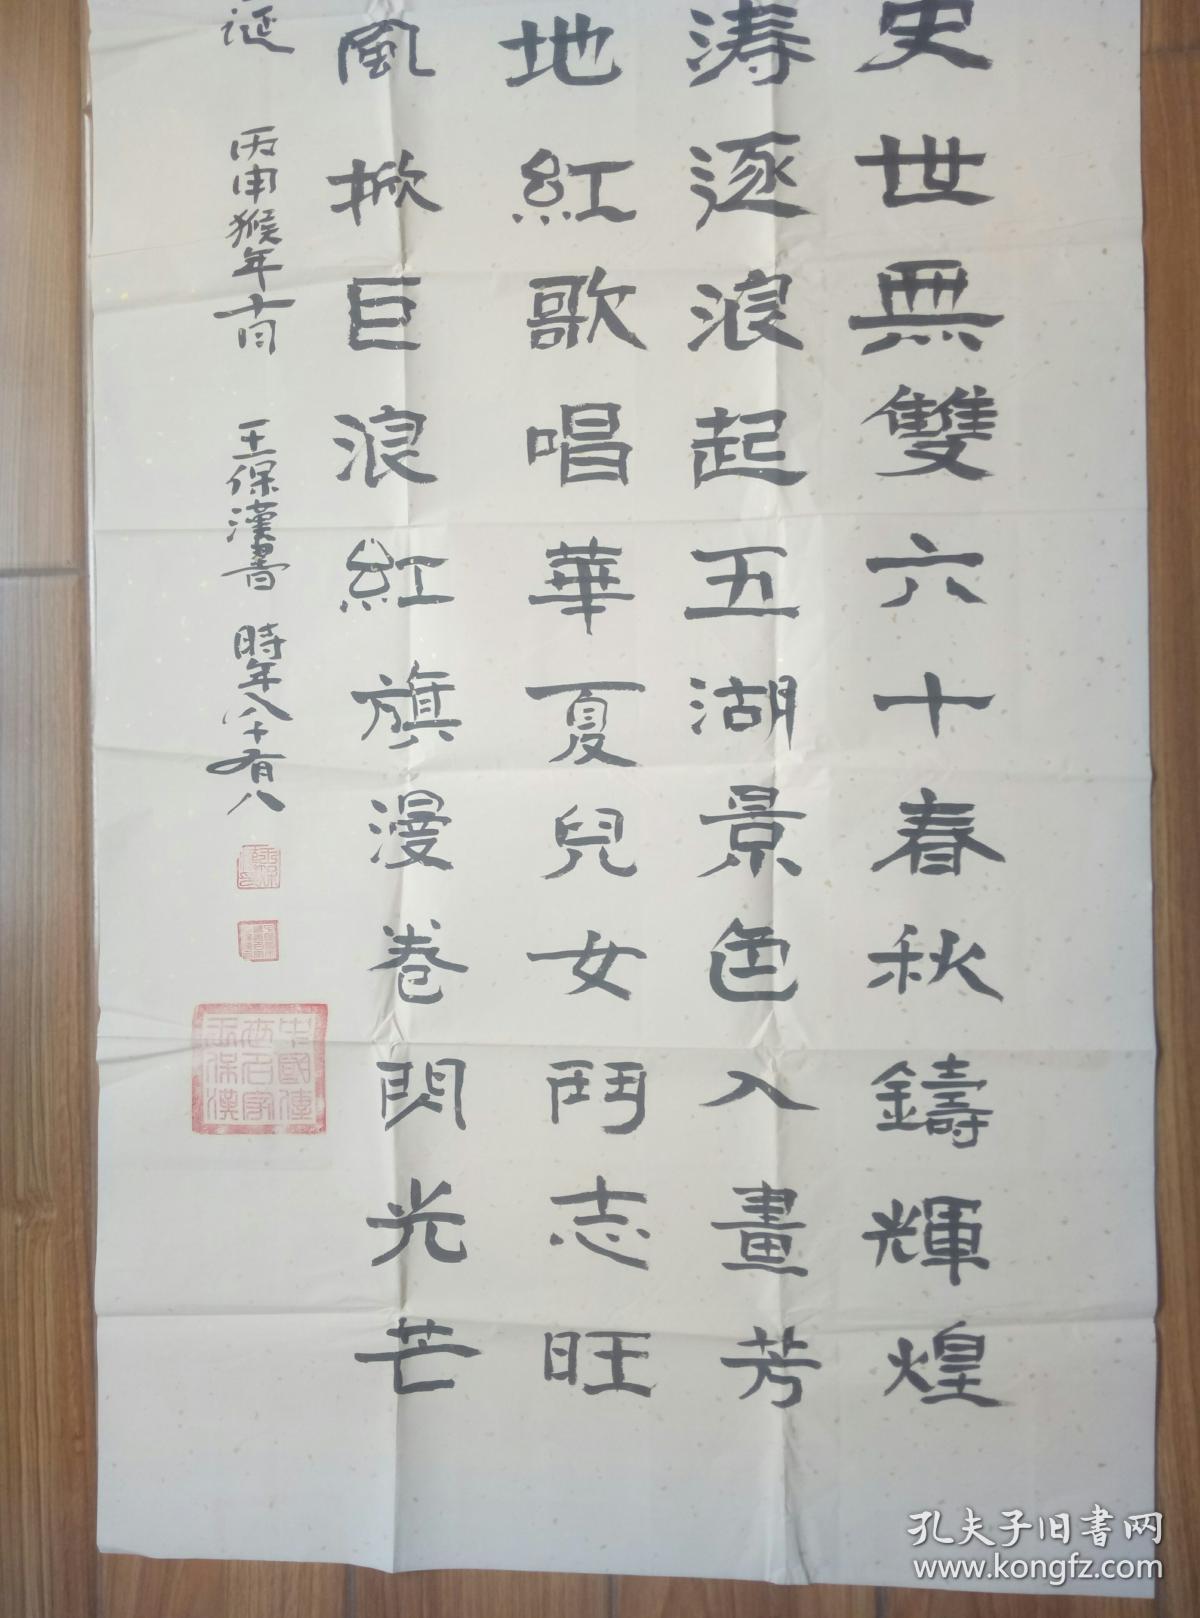 史世無雙六十春秋鑄輝煌
涛逐浪起五湖景色入畫芳
地紅歌唱華夏兒女鬥志旺
風掀巨浪紅旗漫卷閃光芒
诞 丙申猴年十月 王保漢書 時年八十有八
中國傳
世名家
王保漢
孔夫子旧書网
www.kongfz.com